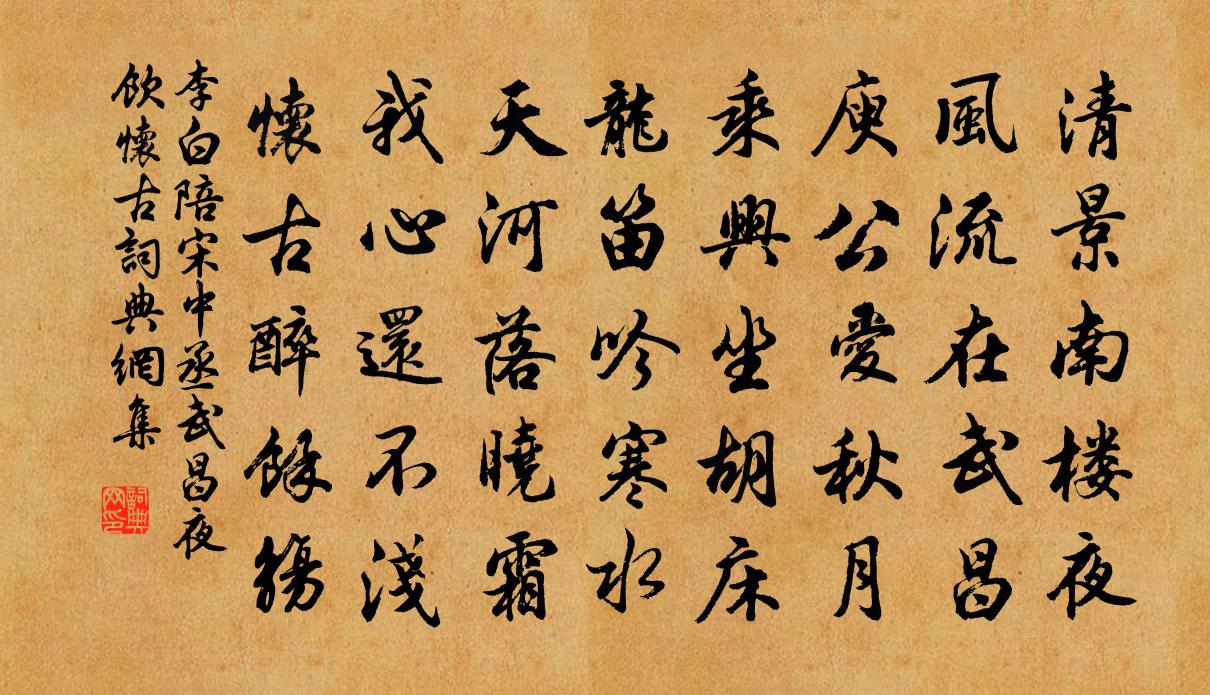 清景南楼夜
風流在武昌
庾公愛秋月
乘興坐胡床
龍笛吟寒水
天河落曉霜
我心還不淺
懷古醉餘觴
李白陪宋中丞武昌夜
飲懷古詞典網集
詞典
网印